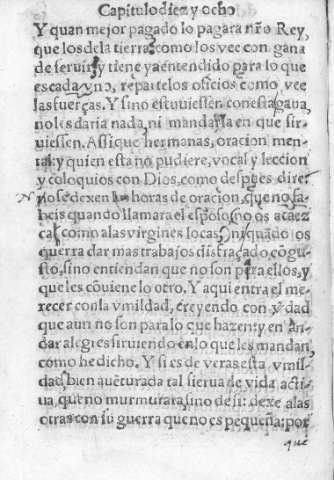 Capitulo diez y ocho
Y quan mejor pagado lo pagara nr̃o Rey,
que los de la tierra: como los vee con gana
de seruir, y tiene ya entendido para lo que
es cada yno, repartelos oficios como vee
las fuerças. Y si no estuuiessen con esta gana,
no les daria nada, ni mandarla en que sir
uiessen. Assi que hermanas, oracion men
tal: y quien esta no pudiere, vocal y leccion
y coloquios con Dios, como despues dire:
no se dexen las horas de oracion, que no sa
beis quando llamara el esposo, no os acaez
ca, como a las virgines locas, ni quãdo os
querra dar mas trabajos disfraçado cõ gu-
sto, sino entiendan que no son para ellos, y
que les cõuiene lo otro. Y aqui entra el me-
recer con la vmildad, creyendo con verdad
que aun no son para lo que hazen: y en an-
dar alegres siruiendo en lo que les mandan,
como he dicho. Y si es de veras esta vmil-
dad, bien auẽturada tal sierua de vida acti-
ua, que no murmurara, sino de si: dexe a las
otras con su guerra que no es pequeña: por
que